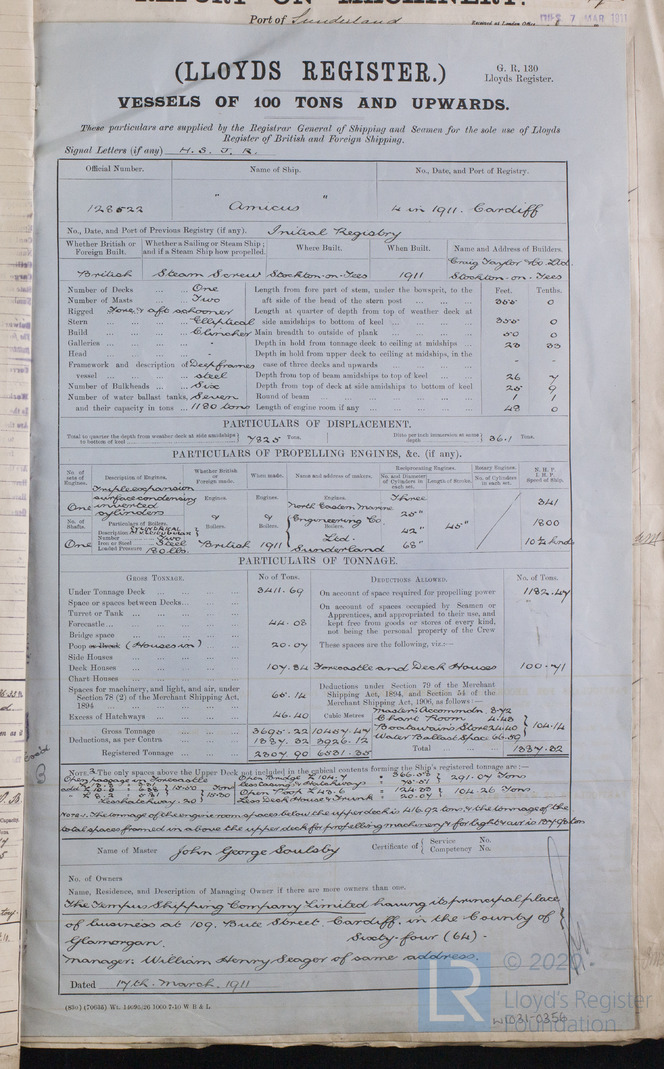 REPORT ON MACHINERY.
Port of Sunderland
Received at London Office TUES. 7 MAR 1911
(LLOYDS REGISTER.)
G. R. 130
Lloyds Register.
VESSELS OF 100 TONS AND UPWARDS.
These particulars are supplied by the Registrar General of Shipping and Seamen for the sole use of Lloyds
Register of British and Foreign Shipping.
Signal Letters (if any) H. S. J. R.
Official Number. Name of Ship. No., Date, and Port of Registry.
128522 "Amicus" 4 in 1911. Cardiff
No., Date, and Port of Previous Registry (if any). Initial Registry
Whether British or Foreign Built. Whether a Sailing or Steam Ship; and if a Steam Ship how propelled. Where Built. When Built. Name and Address of Builders.
British Steam Screw Stockton-on-Tees 1911 Craig Taylor & Co. Ltd. Stockton-on-Tees
Number of Decks ... One Length from fore part of stem, under the bowsprit, to the Feet. Tenths.
Number of Masts ... Two aft side of the head of the stern post 355 0
Rigged Fore & aft schooner Length at quarter of depth from top of weather deck at
Stern ... Elliptical side amidships to bottom of keel 355 0
Build ... Clincher Main breadth to outside of plank 50 0
Galleries ... - Depth in hold from tonnage deck to ceiling at midships 23 33
Head ... - Depth in hold from upper deck to ceiling at midships, in the
Framework and description of Deep frames case of three decks and upwards - -
vessel steel Depth from top of beam amidships to top of keel 26 7
Number of Bulkheads ... Six Depth from top of deck at side amidships to bottom of keel 25 9
Number of water ballast tanks, Seven Round of beam 1 1
and their capacity in tons ... 1180 tons Length of engine room if any 48 0
PARTICULARS OF DISPLACEMENT.
Total to quarter the depth from weather deck at side amidships to bottom of keel 7825 Tons. Ditto per inch immersion at same depth 36.1 Tons.
PARTICULARS OF PROPELLING ENGINES, &c. (if any).
No. of sets of Engines. Description of Engines. Whether British or Foreign made. When made. Name and address of makers. Reciprocating Engines. Rotary Engines. N. H. P.
No. and Diameter of Cylinders in each set. Length of Stroke. No. of Cylinders in each set. I. H. P. Speed of Ship.
One Triple expansion surface condensing inverted cylinders Engines. Engines. Engines. Three 341
North Eastern Marine 25"
No. of Shafts. Particulars of Boilers. & Boilers. & Boilers. Engineering Co. Boilers. 42" 45" 1800
Description Cylindrical Multitubular
Number Two Ltd.
One Iron or Steel Steel British 1911 Sunderland 68" 10½ knots
Loaded Pressure 180 lbs.
PARTICULARS OF TONNAGE.
GROSS TONNAGE. No of Tons. DEDUCTIONS ALLOWED. No. of Tons.
Under Tonnage Deck 3411.69 On account of space required for propelling power 1182.47
Space or spaces between Decks On account of spaces occupied by Seamen or
Turret or Tank Apprentices, and appropriated to their use, and
Forecastle 44.08 kept free from goods or stores of every kind,
Bridge space not being the personal property of the Crew
Poop or Break (Houses in) 20.07 These spaces are the following, viz.:—
Side Houses
Deck Houses 107.84 Forecastle and Deck Houses 100.71
Chart Houses
Spaces for machinery, and light, and air, under Section 78 (2) of the Merchant Shipping Act, 1894 65.14 Deductions under Section 79 of the Merchant Shipping Act, 1894, and Section 54 of the Merchant Shipping Act, 1906, as follows:—
Excess of Hatchways 46.40 Cubic Metres Master's Accommdn. 8.72
Chart Room 4.43
Gross Tonnage 3695.22 10457.47 Boatswain's Store 24.40 104.14
Deductions, as per Contra 1387.32 3926.12 Water Ballast Space 66.59
Registered Tonnage 2307.90 6531.35 Total 1387.32
NOTE 2. The only spaces above the Upper Deck not included in the cubical contents forming the Ship's registered tonnage are:—
NOTE 1. The tonnage of the engine room spaces below the upper deck is 416.92 tons, & the tonnage of the
total spaces framed in above the upper deck for propelling machinery & for light & air is 137.98 ton
Name of Master John George Soulsby Certificate of { Service No.
Competency No.
No. of Owners
Name, Residence, and Description of Managing Owner if there are more owners than one.
The Tempus Shipping Company Limited having its principal place
of business at 109, Bute Street, Cardiff, in the County of
Glamorgan. Sixty-four (64)-
Manager: William Henry Seager of same address.
Dated 17th. March, 1911
(830) (70655) Wt. 14693/26 1000 7-10 W B & L
© 2020
LR
Lloyd's Register
Foundation
W1031-0356